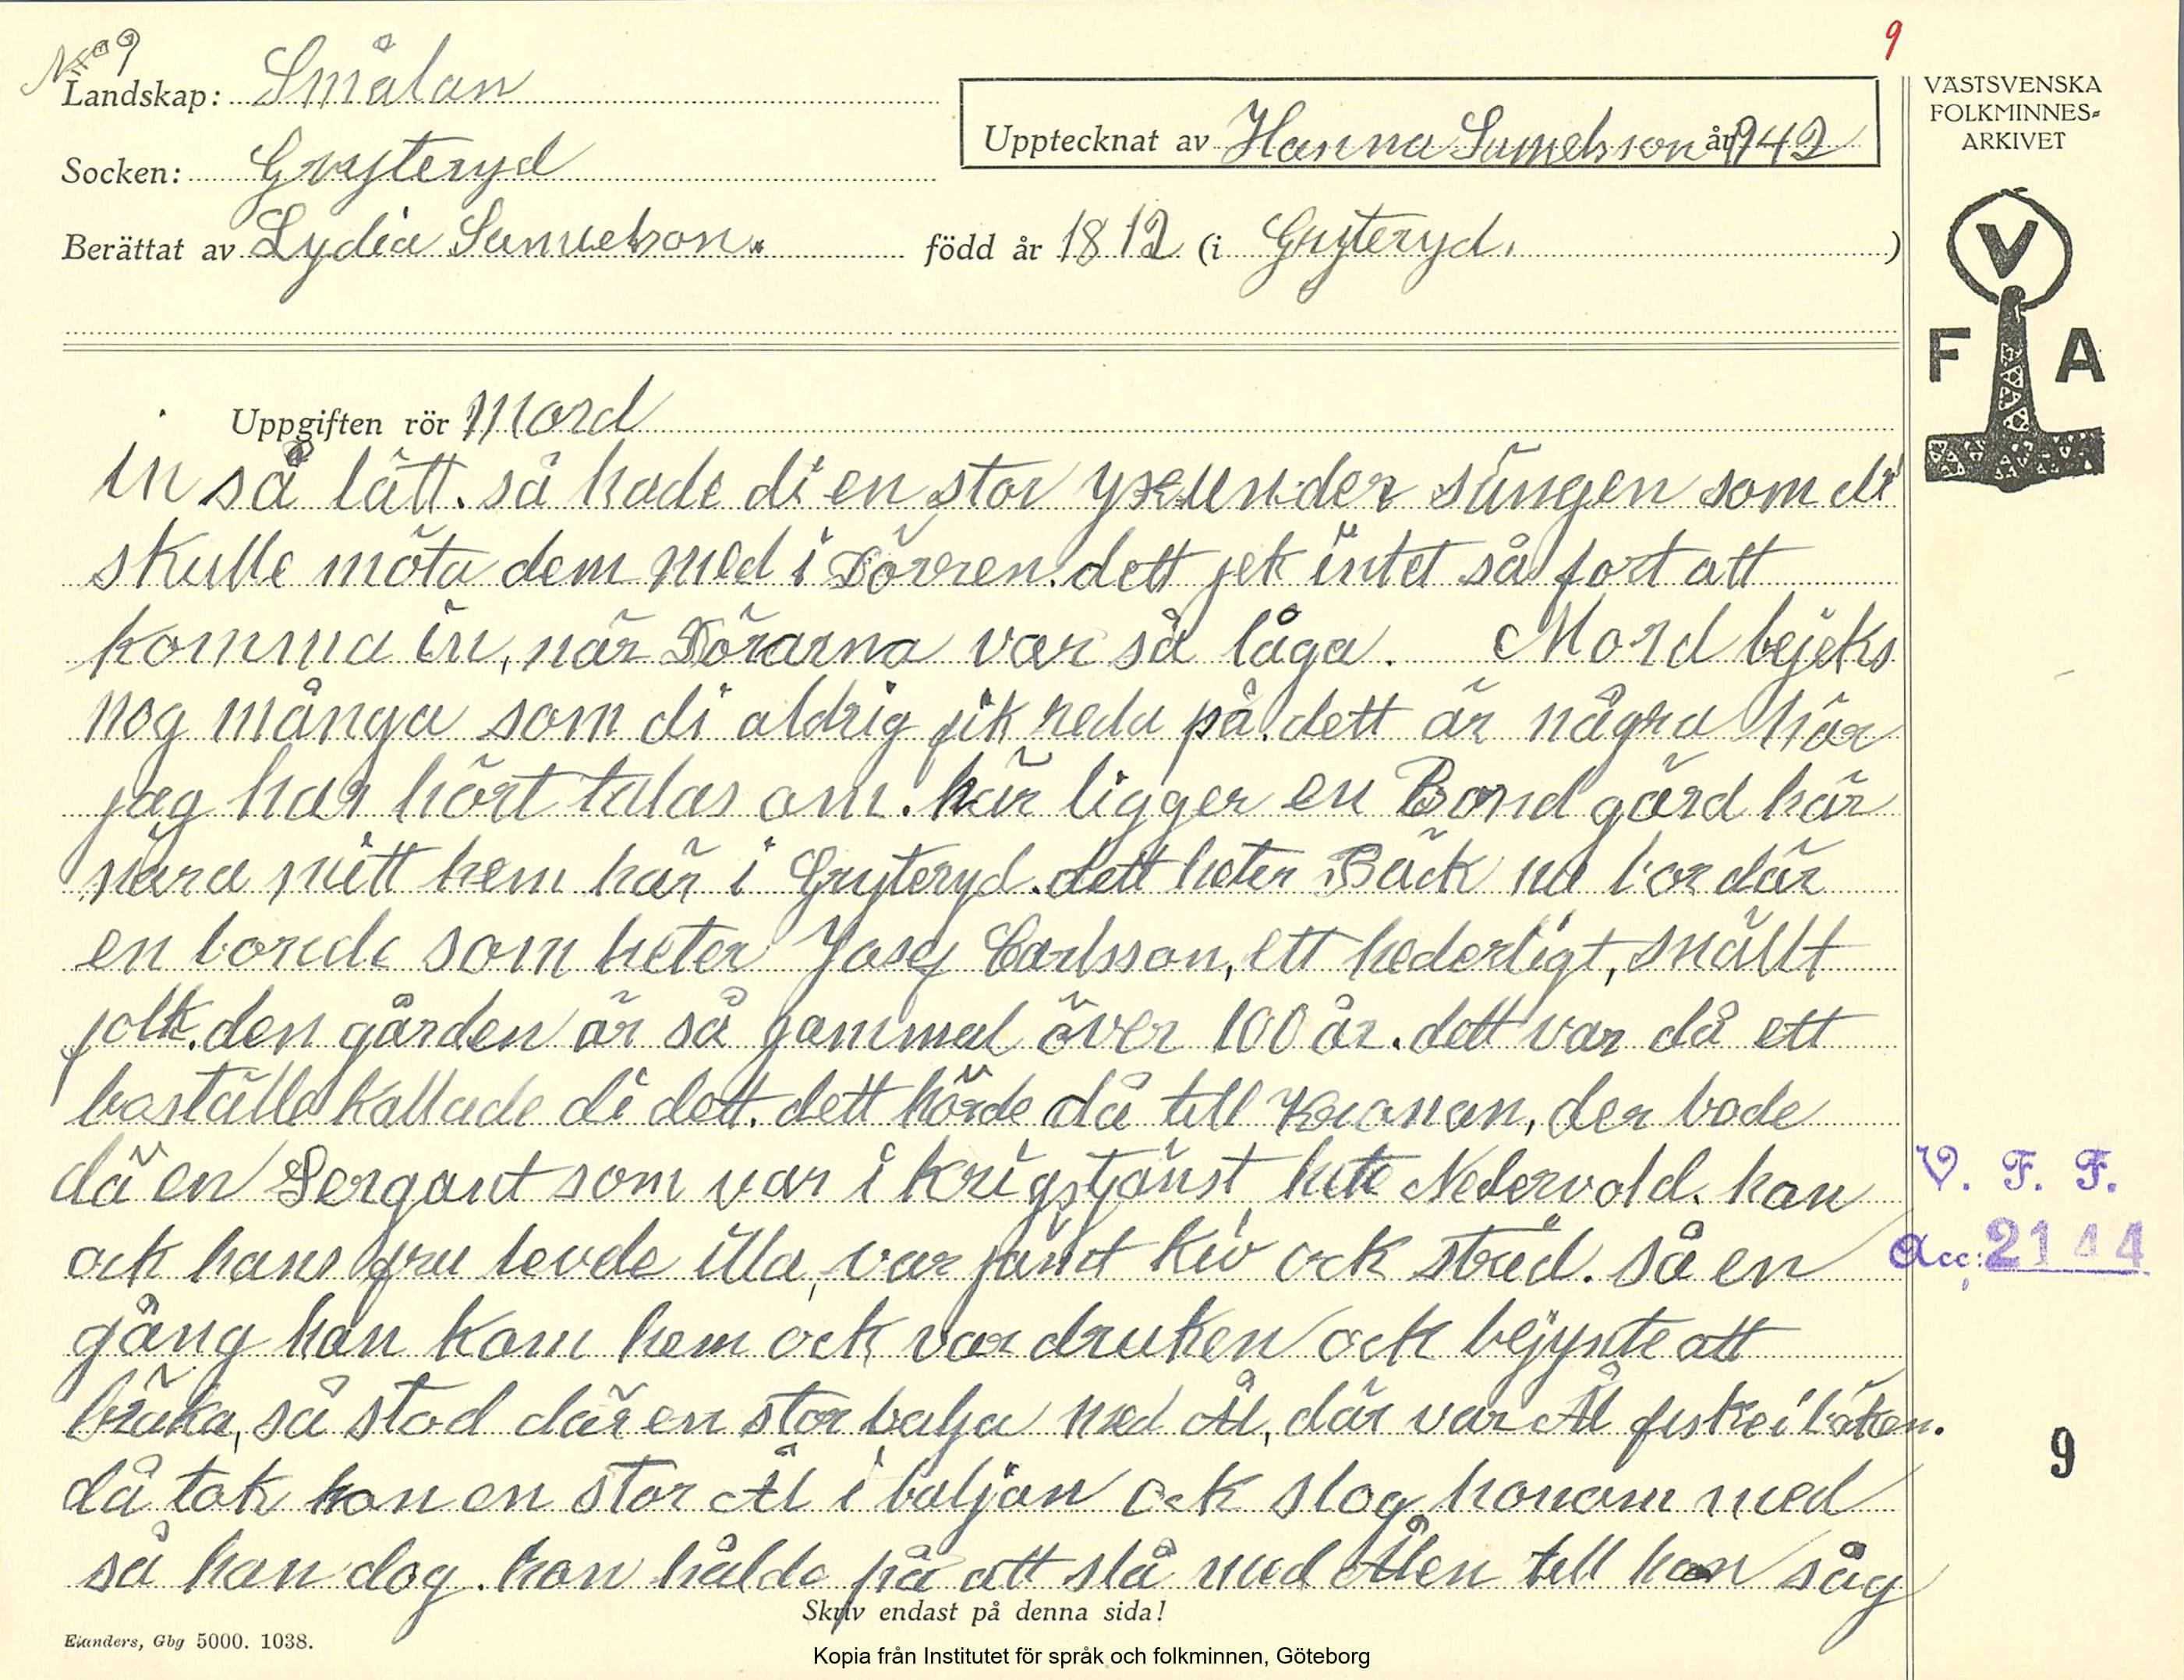 No 9
9
Landskap: Smålan
Upptecknat av Hanna Samelsson år 1942
VÄSTSVENSKA
FOLKMINNES-
ARKIVET
Socken: Gryteryd
Berättat av Lydia Samuelson. född år 1812 (i Gryteryd. )
V
F A
Uppgiften rör Mord
in så lätt. så hade di en stor yxe under sängen som di
skulle möta dem med i Dörren. dett jek intet så fort att
komma in, när Dörarna var så låga. Mord bejeks
nog många som di aldrig fik reda på. dett är några här
jag har hört talas om. här ligger en Bond gård här
nära mitt hem här i Gryteryd. dett heter Bäck nu bor där
en bonde som heter Josef Carlsson, ett hederligt, snällt
folk. den gården är så gammal över 100 år. dett var då ett
boställe kallade di dett. dett hörde då till Kronan, der bode
då en Sergant som var i krigstjänst hete Nedervold. han
ock hans fru levde illa, var jämt kiv ock sträd. så en
gång han kom hem ock var druken ock bejynte att
bråka, så stod där en stor balja med Ål, där var Ål fiske i bäken.
då tok hon en stor Ål i baljan ock slog honom med
så han dog. hon hålde på att slå med Ålen till hon såg
V. F. F.
Acc: 2144
9
Skriv endast på denna sida!
Elanders, Gbg 5000. 1038.
Kopia från Institutet för språk och folkminnen, Göteborg